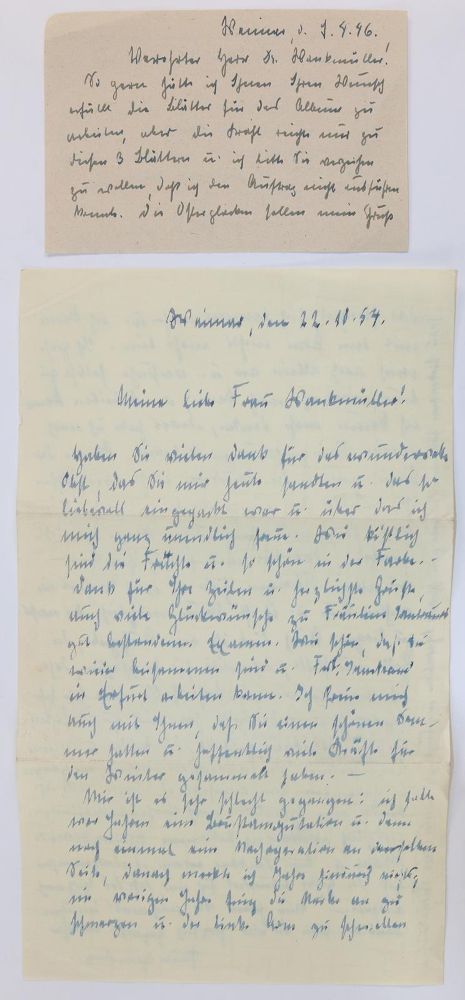 Weimar, d. 9.4.46.
Verehrter Herr Dr. Wankmüller!
So gern hätte ich Ihnen Ihren Wunsch
erfüllt die Blätter für das Album zu
arbeiten, aber die Kraft reichte nur zu
diesen 3 Blättern u. ich bitte Sie verzeihen
zu wollen, daß ich den Auftrag nicht ausführen
konnte. Die Osterglocken sollen mein Gruß
Weimar, den 22.10.54.
Meine liebe Frau Wankmüller!
Haben Sie vielen Dank für das wundervolle
Obst, das Sie mir heute sandten u. das so
liebevoll eingepackt war u. über das ich
mich ganz unendlich freue. Wie köstlich
sind die Früchte u. so schön in der Farbe. -
Dank für Ihre Zeilen u. herzlichste Grüße,
auch viele Glückwünsche zu Fräulein
gut bestandenem Examen. Wie schön, daß Sie
wieder beisammen sind u. Frl.
in Erfurt arbeiten kann. Ich freue mich
auch mit Ihnen, daß Sie einen schönen Som-
mer hatten u. hoffentlich viele Kräfte für
den Winter gesammelt haben. —
Mir ist es sehr schlecht gegangen: ich hatte
vor Jahren eine Brustamputation u. dann
noch einmal eine Nachoperation an derselben
Seite, danach merkte ich Jahre hindurch nichts,
im vorigen Jahre fing die Narbe an zu
schmerzen u. der linke Arm zu schwellen